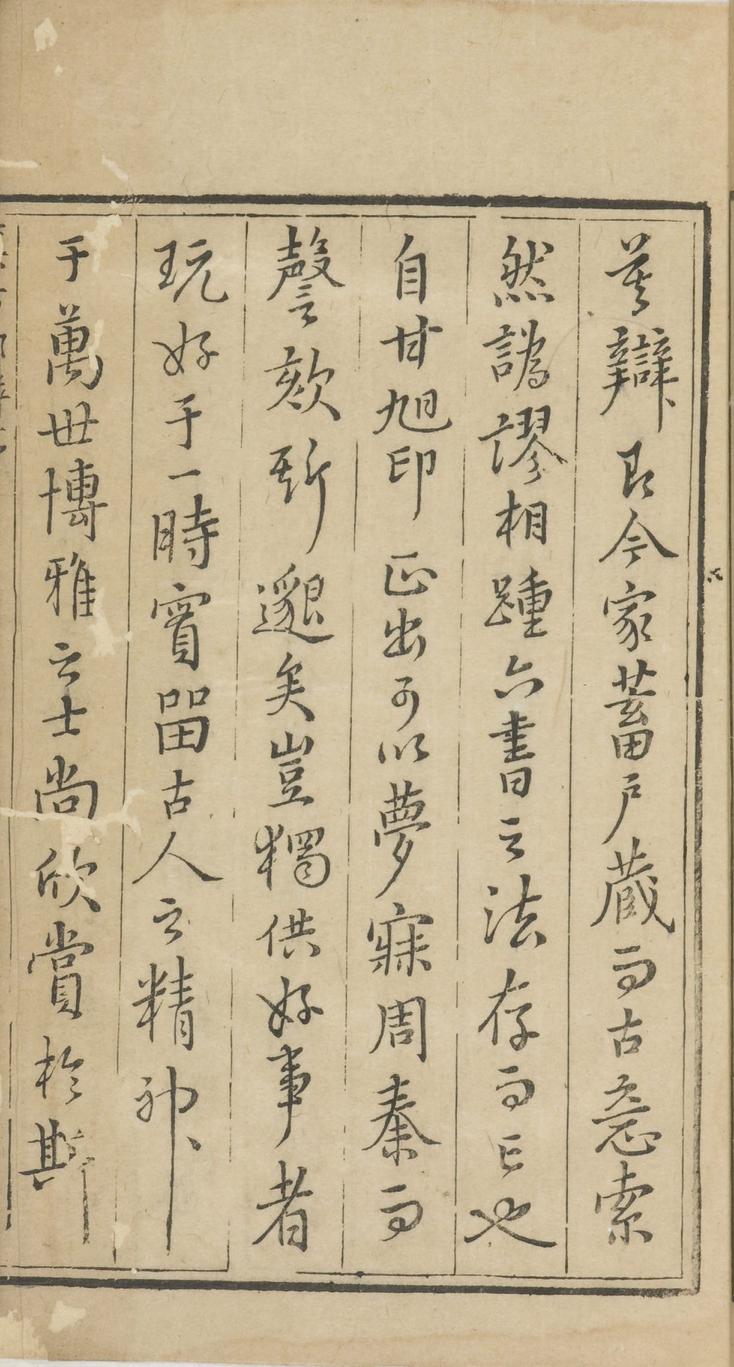 莫辯只今家蓄戶藏而古意索
然譌謬相踵六書之法存而亡也
自甘旭印正出可以夢寐周秦而
謦欬斯邈矣豈獨供好事者
玩好于一時實留古人之精神
于萬世博雅之士尚欣賞於斯